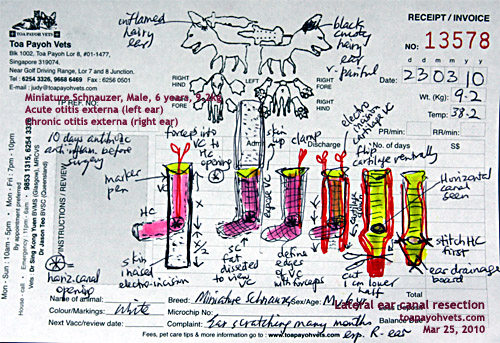 Toa Payoh Vets
Blk 1002, Toa Payoh Lor 8, #01-1477,
Singapore 319074.
Near Golf Driving Range, Lor 7 and 8 Junction.
Tel: 6254 3326, 9668 6469 Fax: 6256 0501
E-mail: judy@toapayohvets.com
RECEIPT / INVOICE
NO: 13578
Date: 23 03 10
Wt. (Kg): 9.2
Temp: 38.2
inflamed
hairy
ear
black
hairy
ear
v. painful
RIGHT
HIND
LEFT
RIGHT
HIND
RIGHT
FORE
RIGHT
FORE
Miniature Schnauzer, Male, 6 years, 9.2kg
Acute otitis externa (left ear)
Chronic otitis externa (right ear)
TP REF NO.
10 days antibiotic
anti inflam before
surgery
forceps into
VC to
HC
opening
skin
clamp
Discharge
electro
incision
cartilage VC
cartilage ventrally
PR/min:
RR/min:
No. of days
S$
marker
pen
VC
HC
expose VC
Horizontal
canal seen
stitch HC
first
ear drainage
board
skin
incised
electro-incision
SC
fat
dissected
to view
VC
define
edges of
VC
with forceps
cut
1 cm lower
half
horiz. canal
opening
INSTRUCTIONS / REVIEW
Mon - Sun: 10am - 5pm • Mon - Fri: 7pm - 10pm
By appointment preferred
House - call • Emergency: 11pm - 6am: 9853 1315, 6254 3326
Vets: Dr Sing Kong Yuen BVMS (Glasgow), MRCVS
Dr Jason Teo BVSC (Queensland)
Lateral ear canal resection
www.toapayohvets.com
Mar 25, 2010
Name of animal:
Breed: Miniature Schnauzer Sex/Age: M 6 yr
Less Deposit
Colour/Markings: White
Microchip No:
Balance Due
Next Vacc/review date:
Complaint: Ear scratching many months
esp. R-ear
Fees, pet care tips & more information go to: www.toapayohvets.com